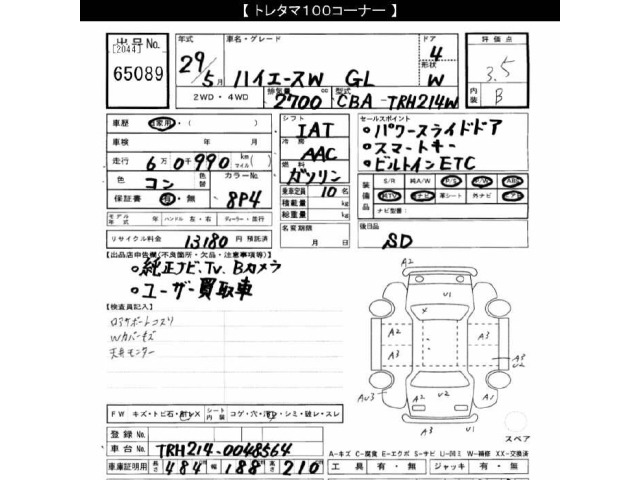 【 トレタマ100コーナー 】
出品No. [2044] 65089
年式 29/5月 車名・グレード ハイエースW GL ドア 4 形状 W 評価点 3.5 内装 B
2WD・4WD 排気量 2700cc 型式 CBA-TRH214W
車歴 自家用・( ) シフト IAT セールスポイント
車検 年 月 冷房 AAC 。パワースライドドア
走行 6万0千990 km(マイル)( ) 燃料 ガソリン 。スマートキー
色 コン 色替 カラーNo. 8P4 。ビルトインETC
保証書 有・無 乗車定員 10名 装備品 S/R 純A/W P/S P/W ABS
積載量 kg 純TV 純ナビ 革シート 外ナビ エアB
モデル年式 年 ハンドル 左・右 ディーラー・並行 総重量 kg ナビ型番:
リサイクル料金 13180円 預託済 名変期限 月 日 後日品 SD
【出品店申告欄(不良箇所・欠品・注意事項等)】
。純正ナビ、Tv、Bカメラ
。ユーザー買取車
【検査員記入】
ロアサポートコスリ
Wカバーキズ
天井モニター
A2
U1
X
A2 A3
A3 A3
A3 U2
AU3 A2 U2 A1
A2
スペア
FW キズ・トビ石・ヒビ・X シート内装 コゲ・穴・汚・シミ・破レ・スレ
登録No.
車台No. TRH214-0048564 A-キズ C-腐食 E-エクボ S-サビ U-凹ミ W-補修 XX-交換済
車庫証明用 長さ 484 幅 188 高さ 210 工具 有・無 ジャッキ 有・無